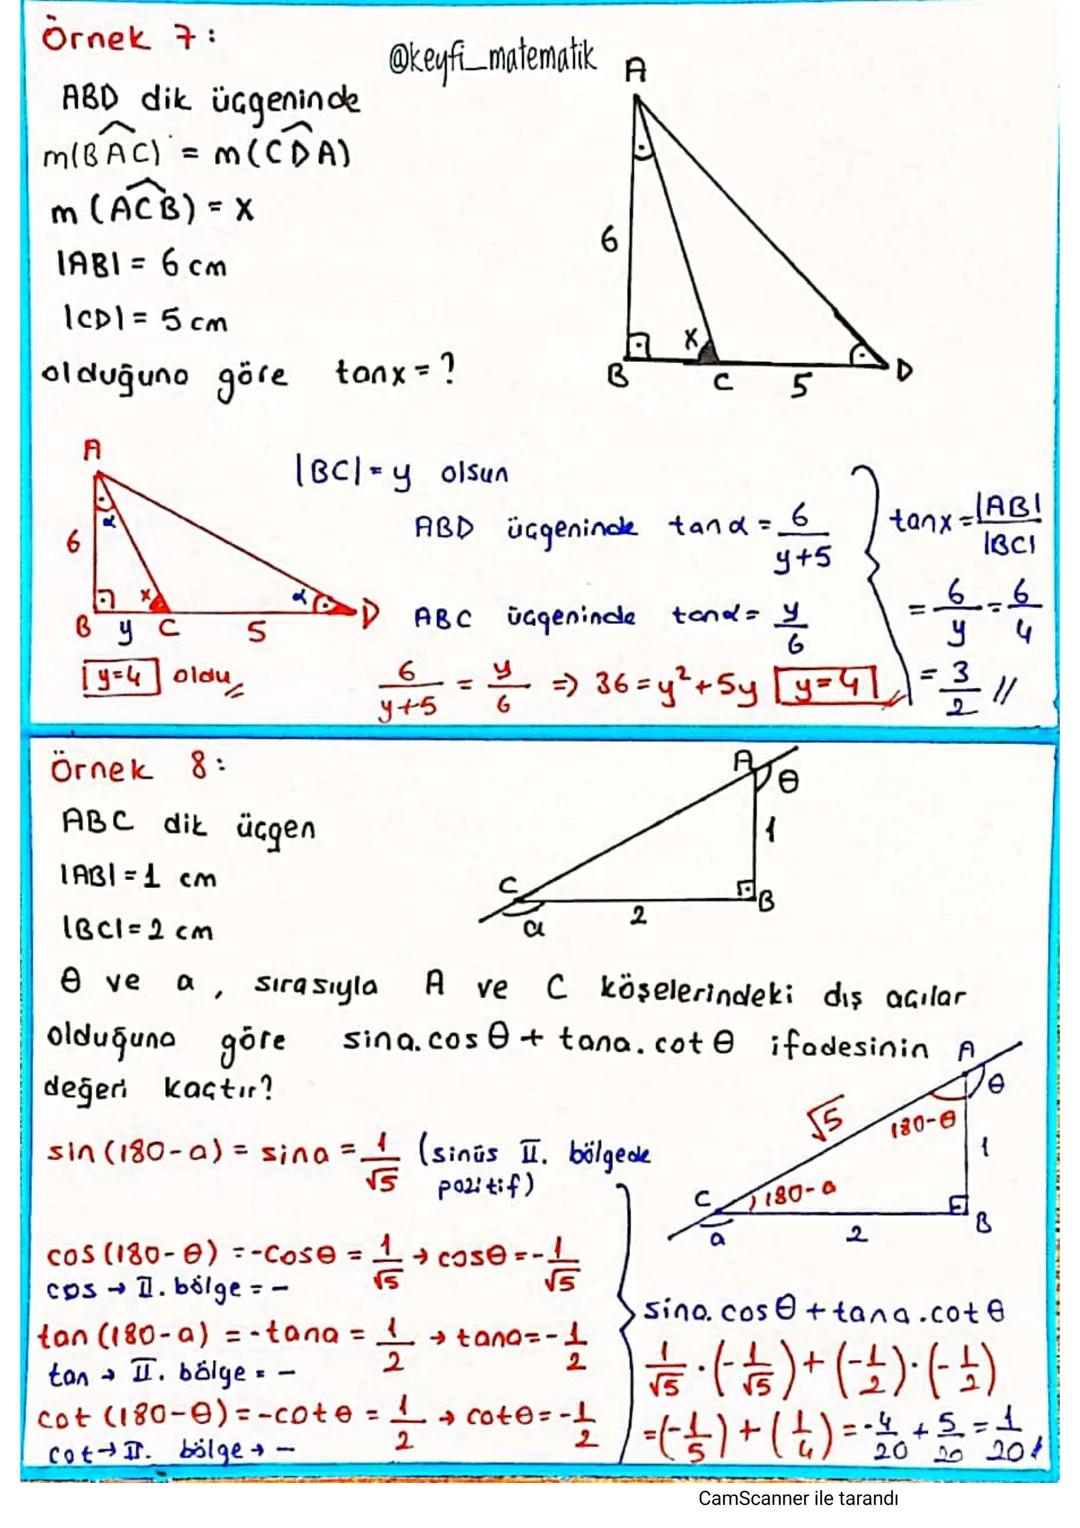 Örnek 7:
@keyfi_matematik
ABD dik üçgeninde
m(BAC) = m(CDA)
m(ACB) = x
|AB| = 6 cm
|CD| = 5 cm
olduğuna göre tanx = ?
A
6
x
B C 5 D
A
6
α
x
α
B y C 5 D
y=4 oldu
|BC| = y olsun
ABD üçgeninde tanα = 6/(y+5)
ABC üçgeninde tanα = y/6
6/(y+5) = y/6 => 36 = y²+5y y=4
tanx = |AB|/|BC|
= 6/y = 6/4
= 3/2 //
Örnek 8:
ABC dik üçgen
|AB| = 1 cm
|BC| = 2 cm
A θ
1
C
B
a 2
θ ve a, sırasıyla A ve C köşelerindeki dış açılar
olduğuna göre sina.cosθ + tana.cotθ ifadesinin
değeri kaçtır?
A
θ
√5
180-θ
1
C 180-a
B
a 2
sin(180-a) = sina = 1/√5 (sinüs II. bölgede
pozitif)
cos(180-θ) = -cosθ = 1/√5 → cosθ = -1/√5
cos → II. bölge = -
tan(180-a) = -tana = 1/2 → tana = -1/2
tan → II. bölge = -
cot(180-θ) = -cotθ = 1/2 → cotθ = -1/2
cot → II. bölge → -
sina.cosθ + tana.cotθ
1/√5 . (-1/√5) + (-1/2).(-1/2)
= (-1/5) + (1/4) = -4/20 + 5/20 = 1/20
CamScanner ile tarandı